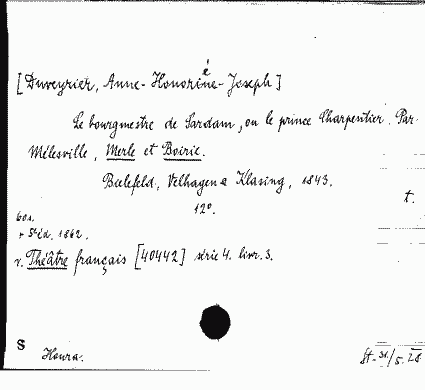 [Duveyrier, Anne-Honorine-Joseph]
é
Le bourgmestre de Sardam, ou le prince Charpentier. Par
Mélesville, Merle et Boirie.
Bielefeld, Velhagen & Klasing, 1843.
12°.
t.
601.
+ 5te éd. 1862.
v. Théâtre français [40442] série 4. livr. 3.
S
St. 31/5. 28